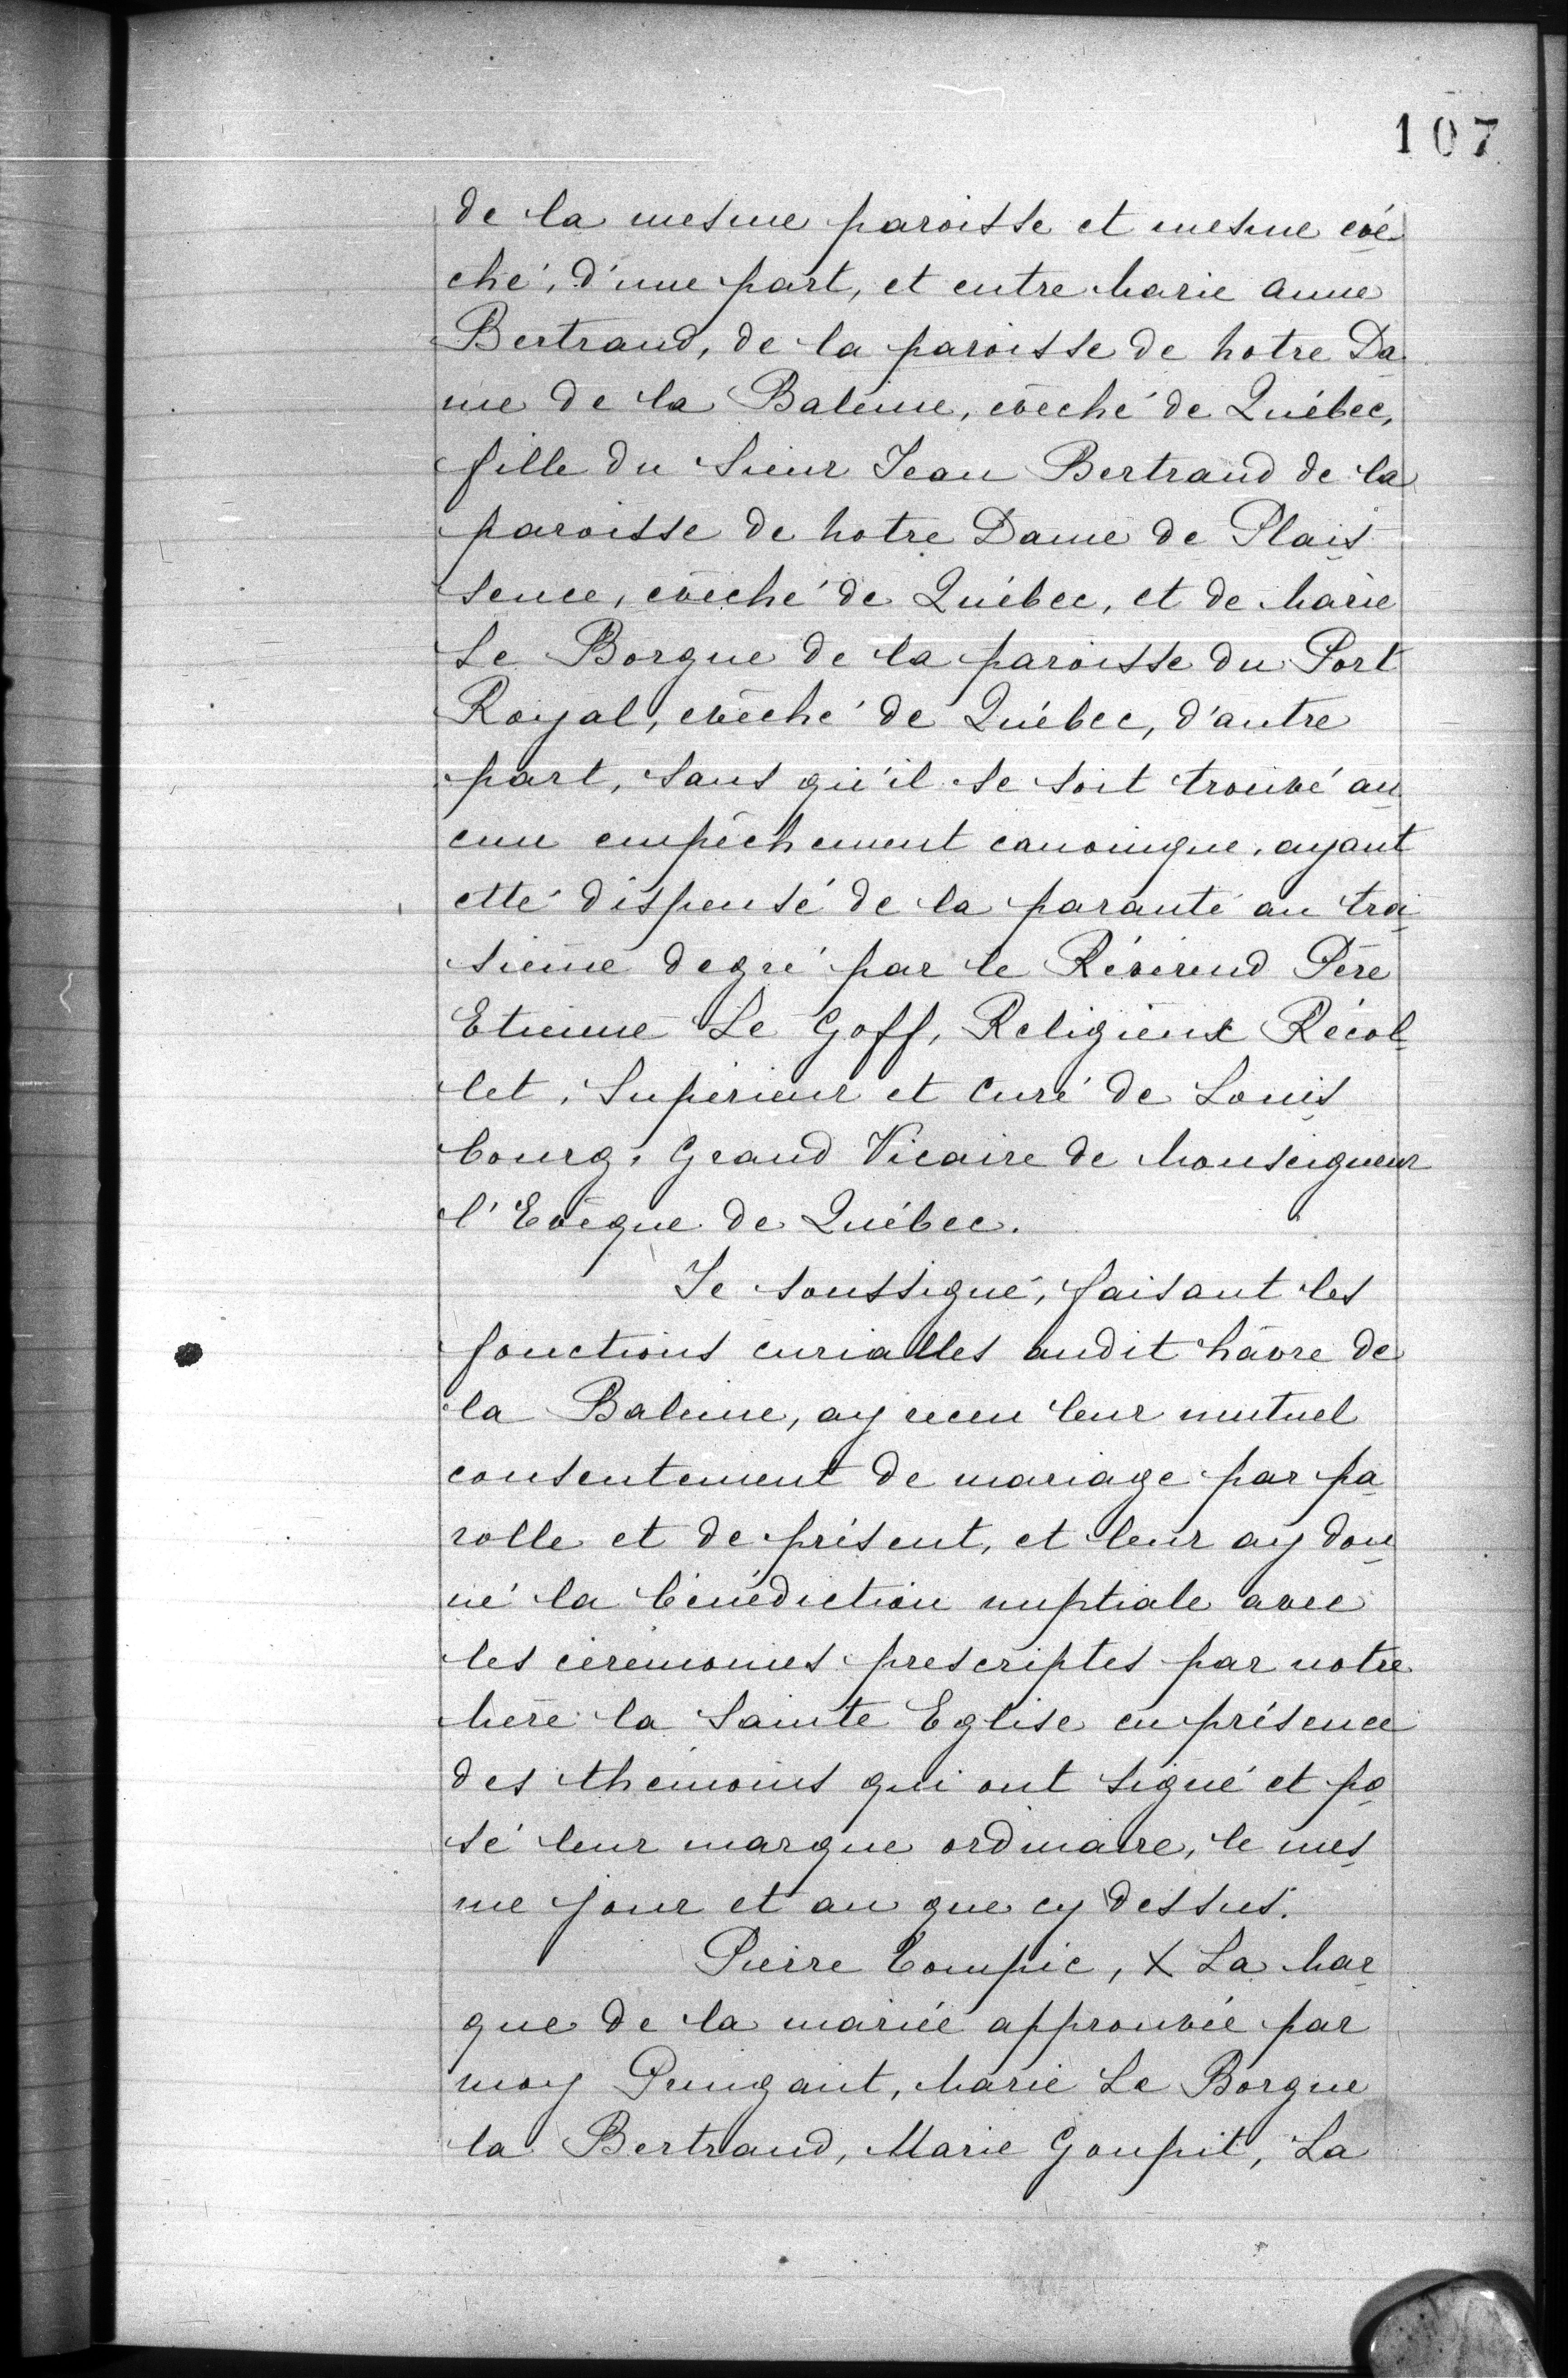 107
de la mesme paroisse et mesme evê
ché, d'une part, et entre Marie Anne
Bertrand, de la paroisse de Notre Da
me de la Baleine, evêché de Québec,
fille du Sieur Jean Bertrand de la
paroisse de Notre Dame de Plais
sence, evêché de Québec, et de Marie
Le Borgne de la paroisse du Port
Royal, evêché de Québec, d'autre
part, sans qu'il se soit trouvé au
cun empêchement canonique, ayant
etté dispensé de la paranté au troi
sième degré par le Révérend Père
Etienne Le Goff, Religieux Récol
let, Supérieur et Curé de Louis
bourg, Grand Vicaire de Monseigneur
l'Evêque de Québec.
Je soussigné, faisant les
fonctions curialles audit hâvre de
la Baleine, ay receu leur mutuel
consentement de mariage par pa
rolle et de présent, et leur ay don
né la bénédiction nuptiale avec
les cérémonies prescriptes par notre
Mère la Sainte Eglise en présence
des themoins qui ont signé et po
sé leur marque ordinaire, le mes
me jour et an que cy dessus.
Pierre Compic, X La Mar
que de la mariée approuvée par
moy Guingant, Marie Le Borgne
la Bertrand, Marie Goupil, La